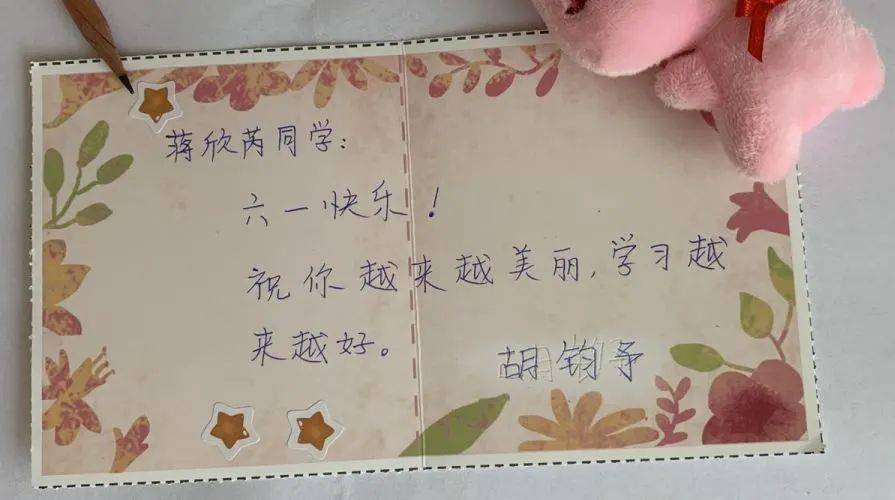 蒋欣芮同学:
六一快乐!
祝你越来越美丽,学习越
来越好。
胡钧予